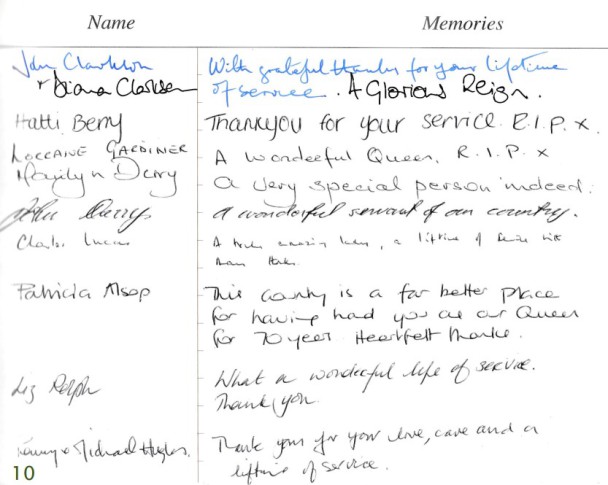 Name Memories
John Clarkson With grateful thanks for your lifetime
+ Diana Clarkson of service. A Glorious Reign.
Hatti Berry Thankyou for your service. R.I.P. x
LORRAINE GARDINER A wonderful Queen. R.I.P. x
Marilyn Derry A very special person indeed.
John Derry. A wonderful servant of our country.
A lady, a lifetime of
Patricia Alsop This country is a far better place
for having had you as our Queen
for 70 year. Heartfelt thanks.
Liz Relph What a wonderful life of service.
Thank you.
& Michael Hughes. Thank you for your love, care and a
lifetime of service.
10